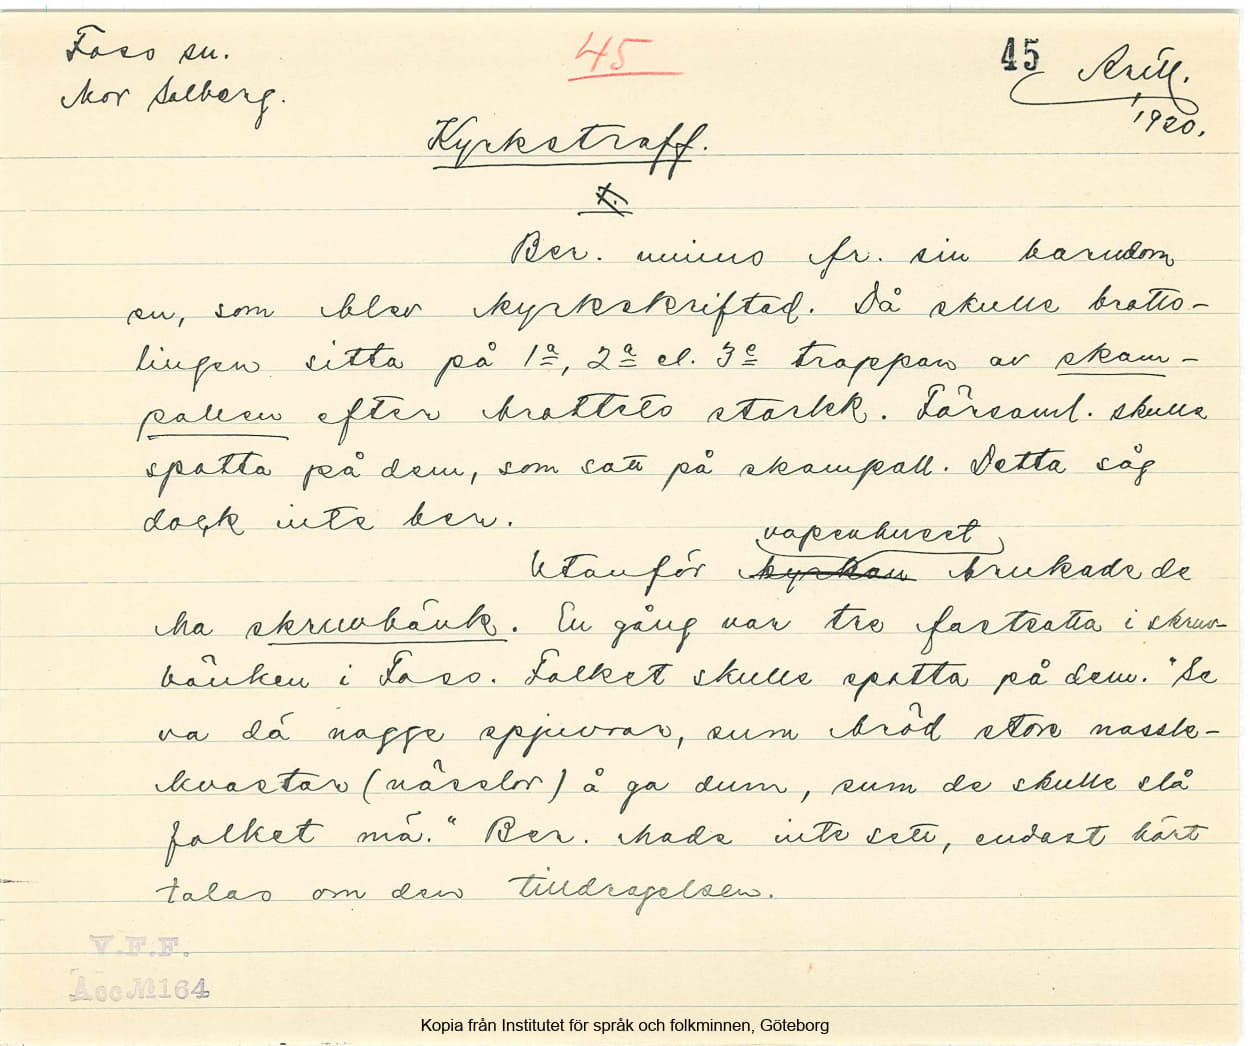 Foss sn.
Mor Salberg.
45
45
Arill.
1920.
Kyrkstraff.
Ber. minns fr. sin barndom
en, som blev kyrkskriftad. Då skulle bratts-
lingen sitta på 1a, 2a el. 3e trappan av skam-
pallen efter brottets starkk. Församl. skulle
spotta på dem, som satt på skampall. Detta såg
dock inte ber.
vapenhuset
Utanför kyrkan brukade de
ha skruvbänk. En gång var tre fastsatta i skruv-
bänken i Foss. Folket skulle spotta på dem. "Se
va då nagge spjuvrar, sum bröd store nassle-
kvastar (nässlor) å ga dum, sum de skulle slå
folket mä." Ber. hade inte sett, endast hört
talas om den tilldragelsen.
V.F.F.
Acc № 164
Kopia från Institutet för språk och folkminnen, Göteborg